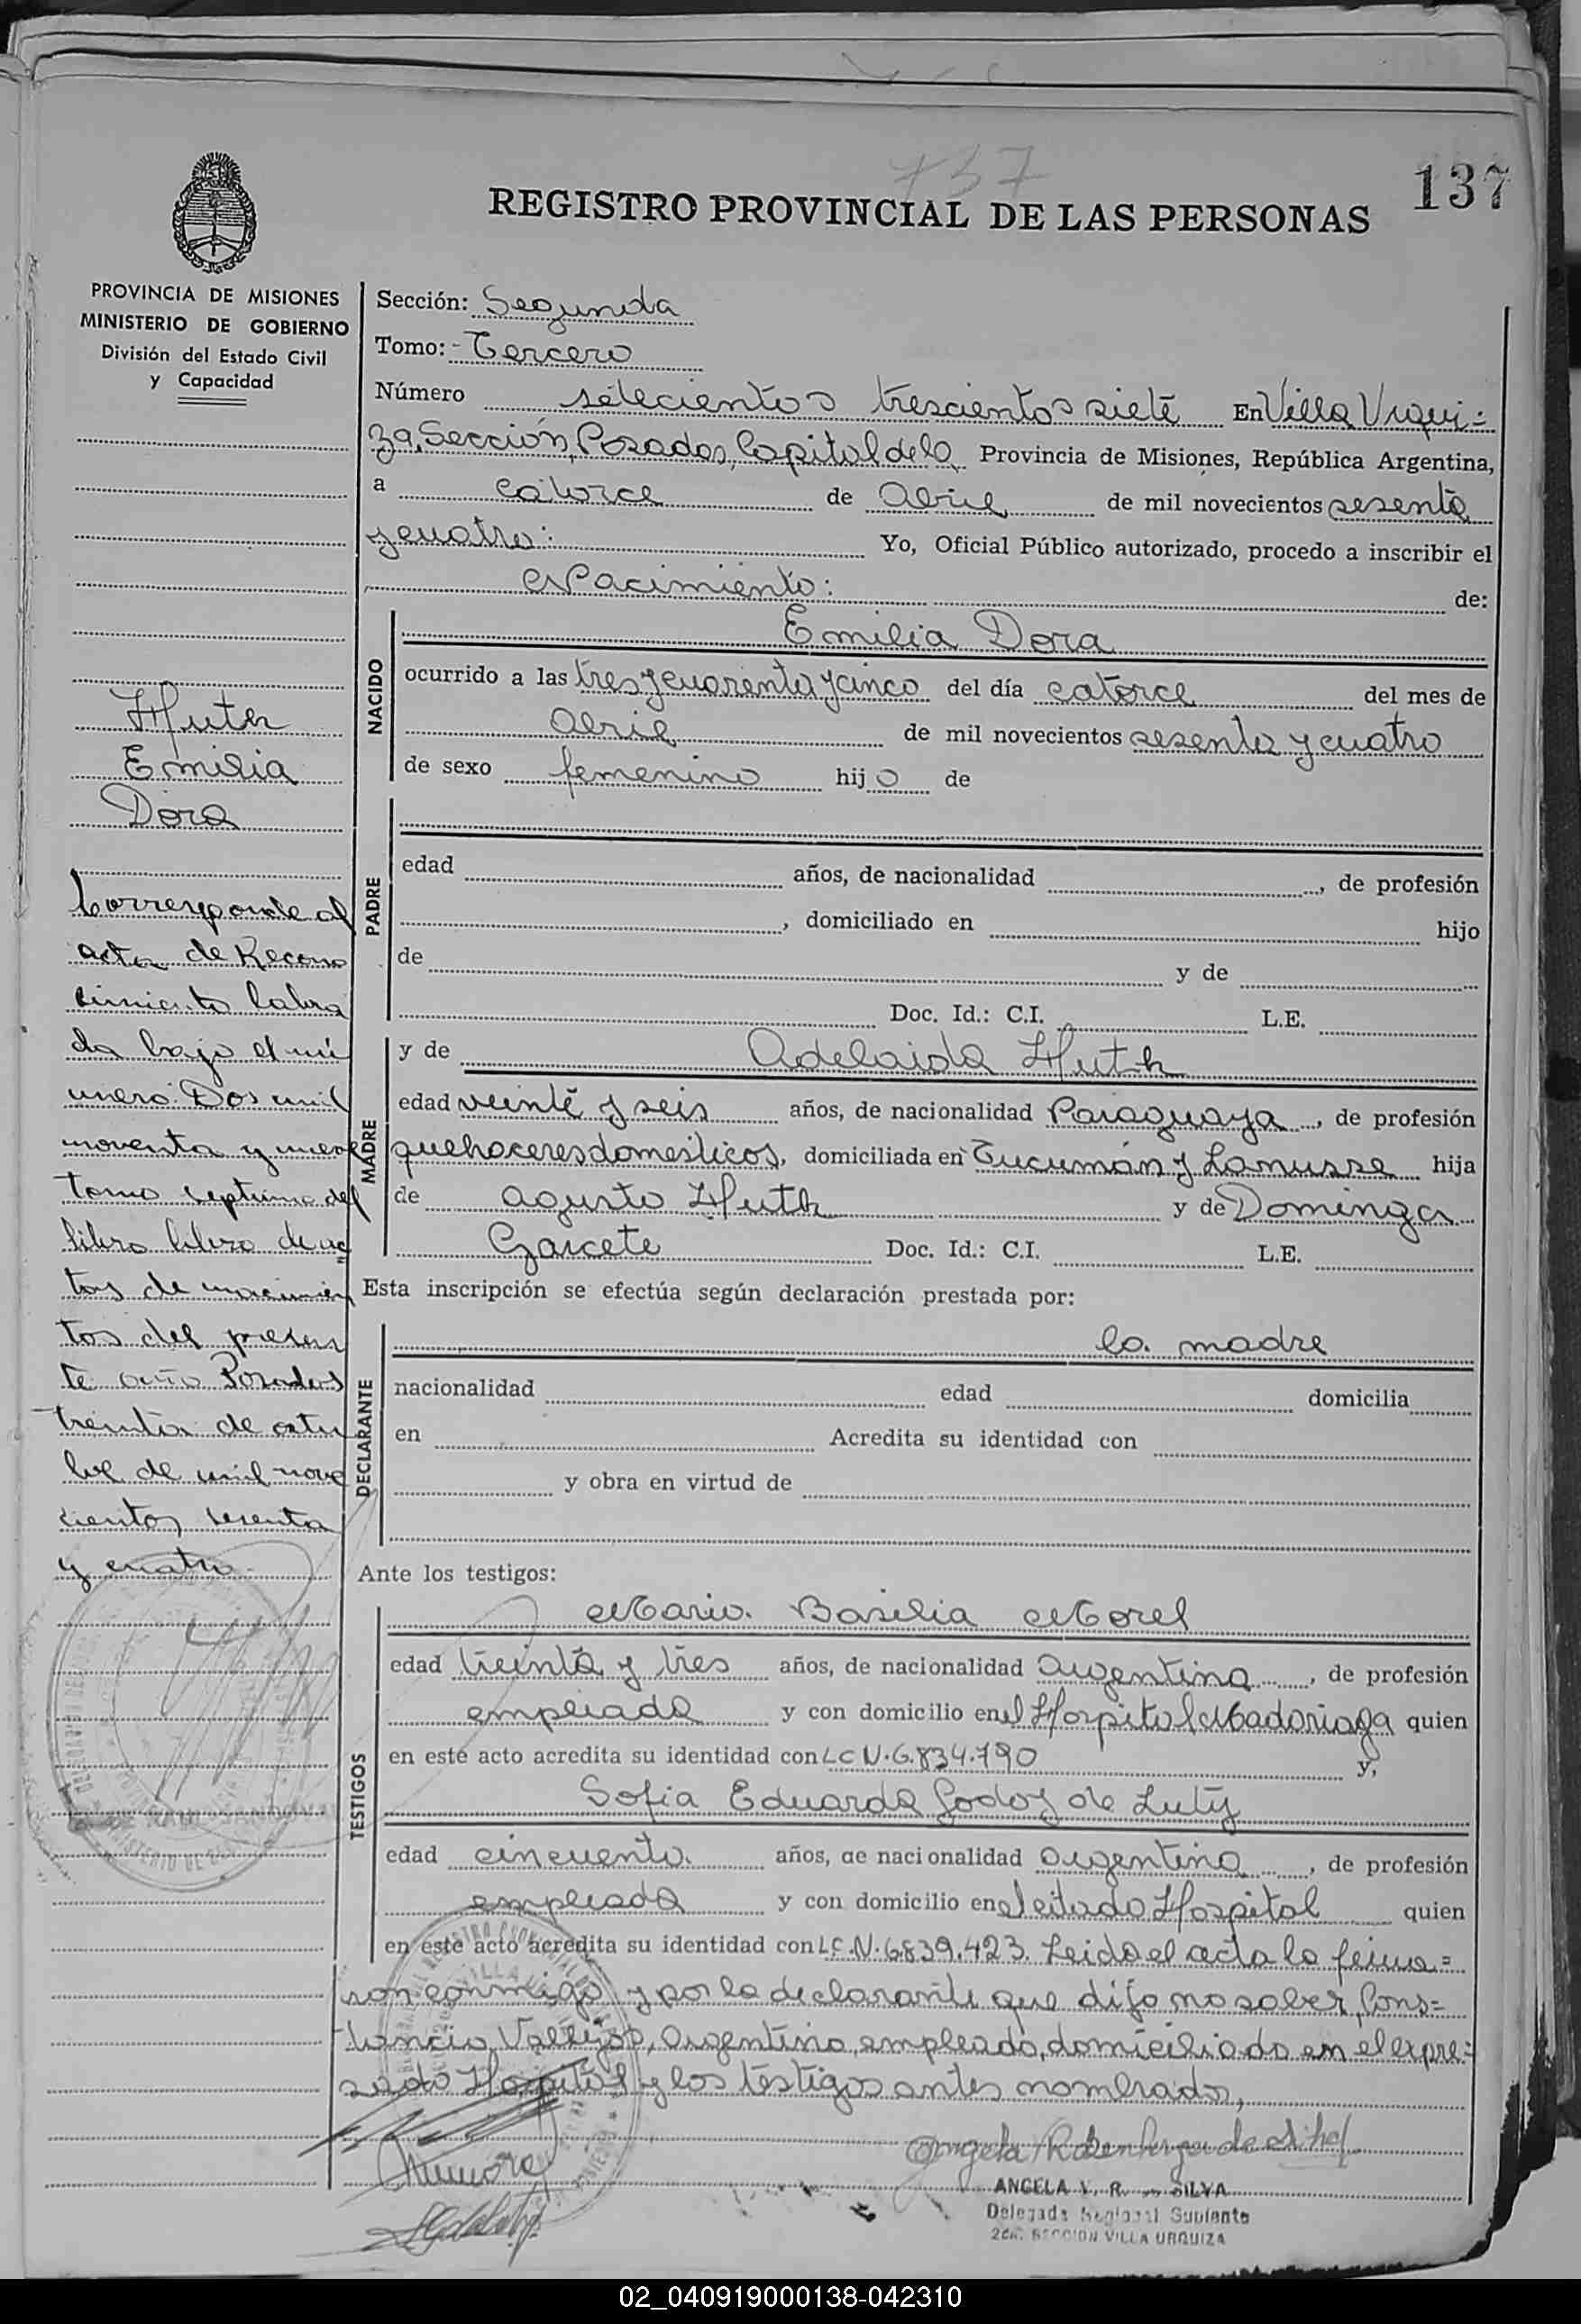 737
137
REGISTRO PROVINCIAL DE LAS PERSONAS
PROVINCIA DE MISIONES
MINISTERIO DE GOBIERNO
División del Estado Civil
y Capacidad
Huth
Emilia
Dora
Corresponde al
acta de Recono
cimiento labra
da bajo el nú
mero Dos mil
noventa y nueve
tomo septimo del
libro libro de ac
tas de nacimien
tos del presen
te año Posadas
treinta de octu
bre de mil nove
cientos sesenta
y cuatro
Sección: Segunda
Tomo:- Tercero
Número setecientos trescientos siete En Villa Urqui=
za, Sección, Posadas, Capital de la Provincia de Misiones, República Argentina,
a catorce de Abril de mil novecientos sesenta
y cuatro: Yo, Oficial Público autorizado, procedo a inscribir el
Nacimiento: de:
NACIDO
Emilia Dora
ocurrido a las tres y cuarenta y cinco del día catorce del mes de
Abril de mil novecientos sesenta y cuatro
de sexo femenino hija de
PADRE
edad años, de nacionalidad , de profesión
, domiciliado en hijo
de y de
Doc. Id.: C.I. L.E.
MADRE
y de Adelaida Huth
edad veinte y seis años, de nacionalidad Paraguaya, de profesión
quehaceres domesticos, domiciliada en Tucumán y Lanusse hija
de Agusto Huth y de Dominga
Garcete Doc. Id.: C.I. L.E.
Esta inscripción se efectúa según declaración prestada por:
DECLARANTE
la madre
nacionalidad edad domicilia
en Acredita su identidad con
y obra en virtud de
Ante los testigos:
TESTIGOS
Maria Basilia Morel
edad treinta y tres años, de nacionalidad Argentina, de profesión
empleada y con domicilio en el Hospital Madariaga quien
en este acto acredita su identidad con L C N. 6.834.790 y,
Sofia Eduarda Godoy de Luty
edad cincuenta años, de nacionalidad Argentina, de profesión
empleada y con domicilio en el citado Hospital quien
en este acto acredita su identidad con L.C. N. 6839.423. Leida el acta la firma=
ron conmigo y por la declarante que dijo no saber, Cons=
tancio Vallejos, Argentino, empleado, domiciliado en el expre=
sado Hospital y los testigos antes nombrados,
ANGELA V. R. de SILVA
Delegada Regional Suplente
2da. SECCION VILLA URQUIZA
02_040919000138-042310